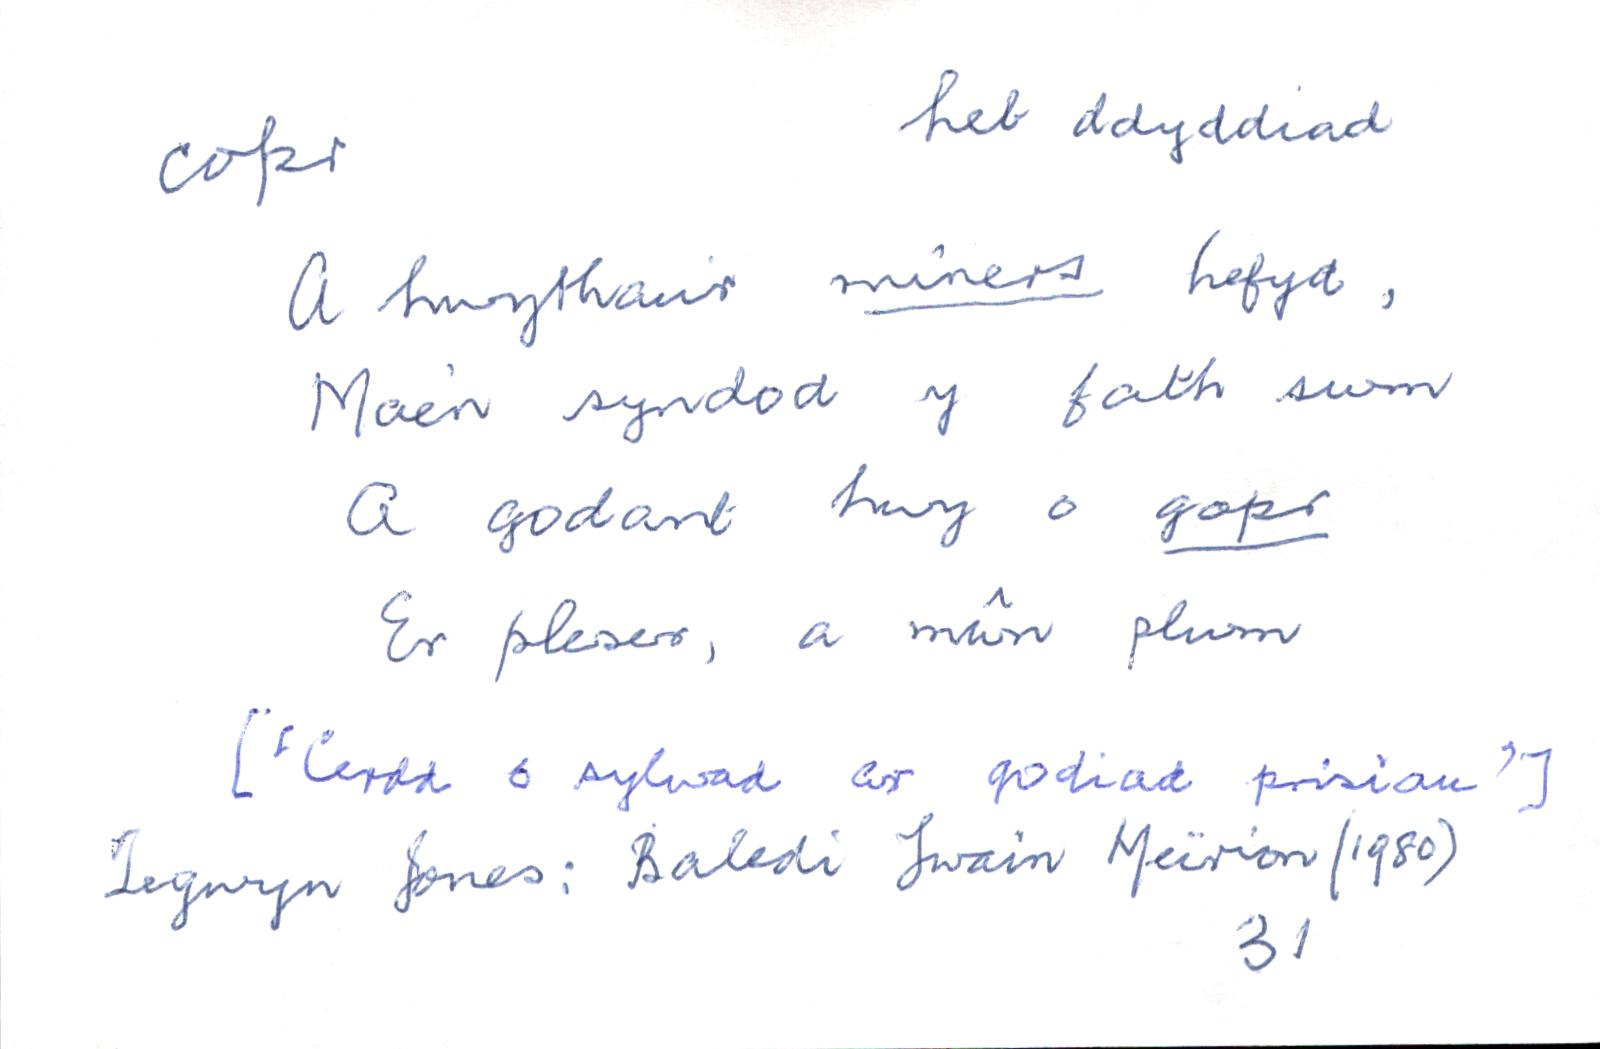 copr
heb ddyddiad
A hwythau'r miners hefyd,
Mae'n syndod y fath swm
A godant hwy o gopr
Er pleser, a mŵn plwm
['Cerdd o sylwad ar godiad prisiau']
Tegwyn Jones: Baledi Ywain Meirion (1980)
31